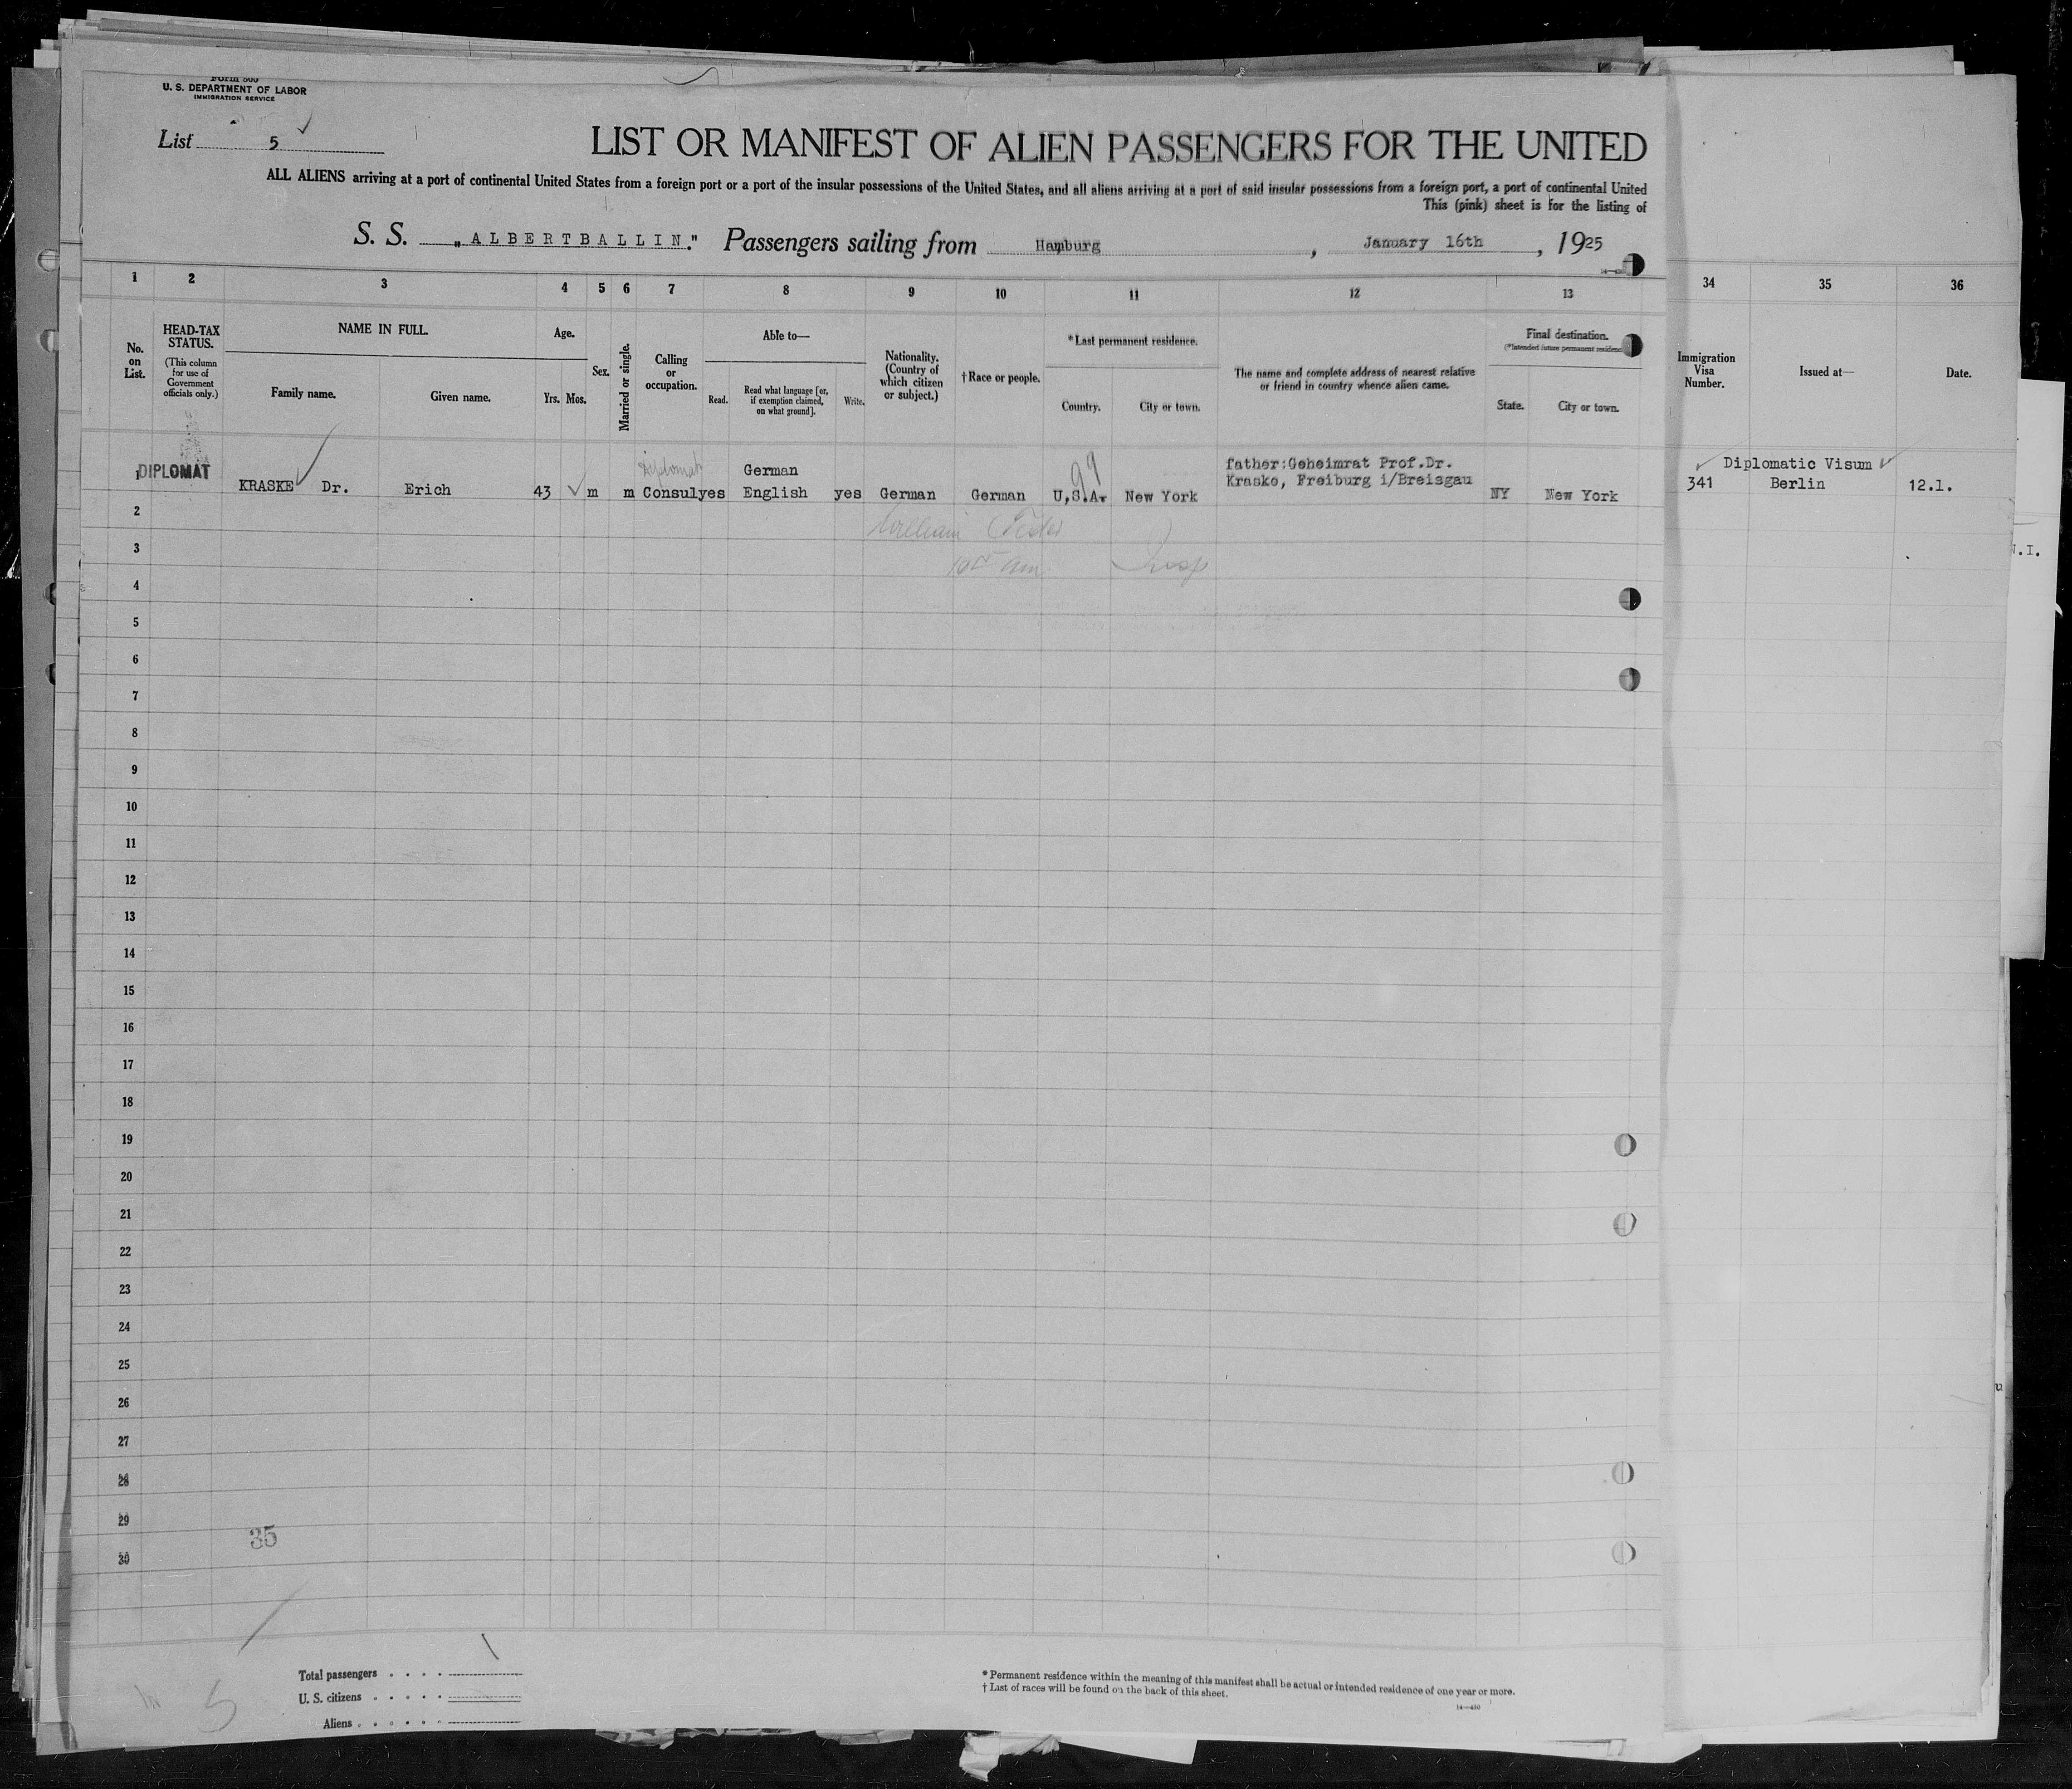 Form 500
U. S. DEPARTMENT OF LABOR
IMMIGRATION SERVICE
List 5
LIST OR MANIFEST OF ALIEN PASSENGERS FOR THE UNITED
ALL ALIENS arriving at a port of continental United States from a foreign port or a port of the insular possessions of the United States, and all aliens arriving at a port of said insular possessions from a foreign port, a port of continental United
This (pink) sheet is for the listing of
S. S. „ALBERTBALLIN." Passengers sailing from Hamburg , January 16th , 1925
1 2 3 4 5 6 7 8 9 10 11 12 13 34 35 36
No. on List.
HEAD-TAX STATUS.
(This column for use of Government officials only.)
NAME IN FULL.
Family name. Given name.
Age.
Yrs. Mos.
Sex.
Married or single.
Calling or occupation.
Able to—
Read. Read what language [or, if exemption claimed, on what ground]. Write.
Nationality. (Country of which citizen or subject.)
†Race or people.
*Last permanent residence.
Country. City or town.
The name and complete address of nearest relative or friend in country whence alien came.
Final destination.
(*Intended future permanent residence
State. City or town.
Immigration Visa Number.
Issued at—
Date.
Diplomat German father:Geheimrat Prof.Dr. Diplomatic Visum
1 DIPLOMAT KRASKE Dr. Erich 43 m m Consul yes English yes German German U.S.A. New York Kraske, Freiburg i/Breisgau NY New York 341 Berlin 12.1.
99
2
William
3
am Insp
4
5
6
7
8
9
10
11
12
13
14
15
16
17
18
19
20
21
22
23
24
25
26
27
28
29
35
30
Total passengers
U. S. citizens
Aliens
5
* Permanent residence within the meaning of this manifest shall be actual or intended residence of one year or more.
† List of races will be found on the back of this sheet.
14—430